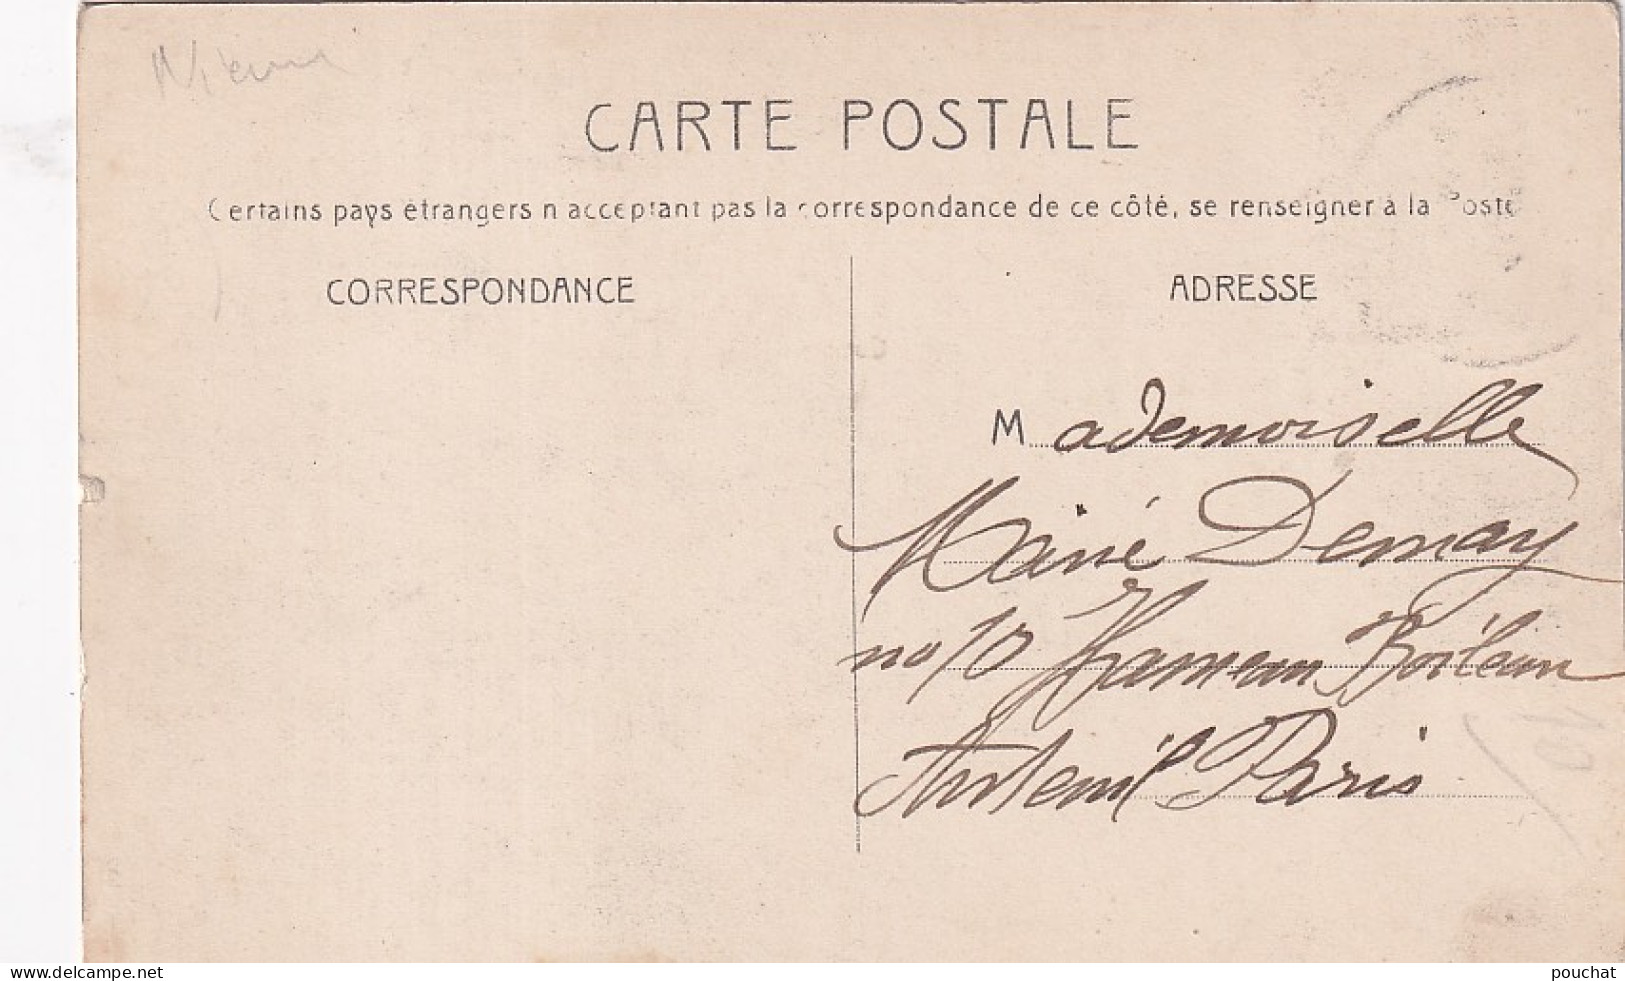 CARTE POSTALE
Certains pays étrangers n'acceptant pas la correspondance de ce côté, se renseigner à la Poste
CORRESPONDANCE
ADRESSE
Mademoiselle
Demay
no 10 Hameau Boileau
Auteuil Paris
www.delcampe.net
pouchat